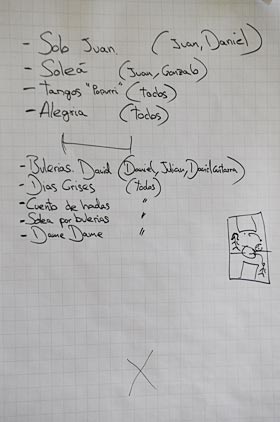 - Solo Juan. (Juan, Daniel)
- Soleá (Juan, Gonzalo)
- Tangos "Popurri" (todos)
- Alegria (todos)
- Bulerias. David (Daniel, Julian, David Guitarra)
- Dias Grises (todos)
- Cuento de hadas "
- Solea por bulerias "
- Dame Dame "